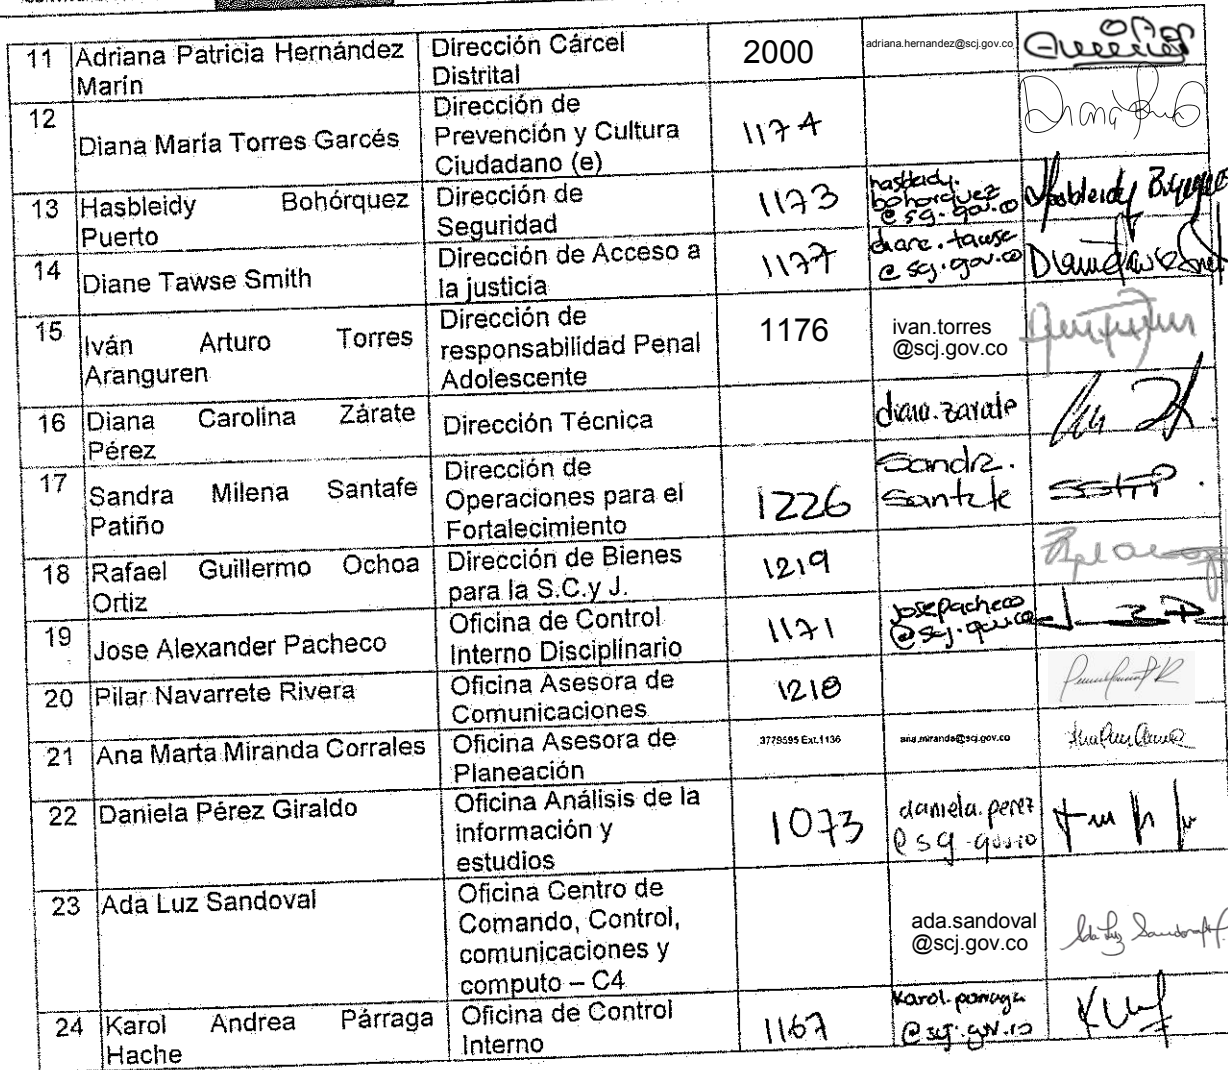 11 Adriana Patricia Hernández Marín Dirección Cárcel Distrital 2000 adriana.hernandez@scj.gov.co
12 Diana María Torres Garcés Dirección de Prevención y Cultura Ciudadano (e) 1174
13 Hasbleidy Bohórquez Puerto Dirección de Seguridad 1173 hasbleidy.bohorquez@scj.gov.co Hasbleidy
14 Diane Tawse Smith Dirección de Acceso a la justicia 1177 diane.tawse@scj.gov.co
15 Iván Arturo Torres Aranguren Dirección de responsabilidad Penal Adolescente 1176 ivan.torres@scj.gov.co
16 Diana Carolina Zárate Pérez Dirección Técnica diana.zarate
17 Sandra Milena Santafe Patiño Dirección de Operaciones para el Fortalecimiento 1226 Sandra.Santafe
18 Rafael Guillermo Ochoa Ortiz Dirección de Bienes para la S.C.y J. 1219
19 Jose Alexander Pacheco Oficina de Control Interno Disciplinario 1171 josepacheco@scj.gov.co
20 Pilar Navarrete Rivera Oficina Asesora de Comunicaciones 1218
21 Ana Marta Miranda Corrales Oficina Asesora de Planeación 3779595 Ext.1136 ana.miranda@scj.gov.co
22 Daniela Pérez Giraldo Oficina Análisis de la información y estudios 1073 daniela.perez@scj.gov.co
23 Ada Luz Sandoval Oficina Centro de Comando, Control, comunicaciones y computo – C4 ada.sandoval@scj.gov.co Ada Luz Sandoval
24 Karol Andrea Párraga Hache Oficina de Control Interno 1167 karol.parraga@scj.gov.co